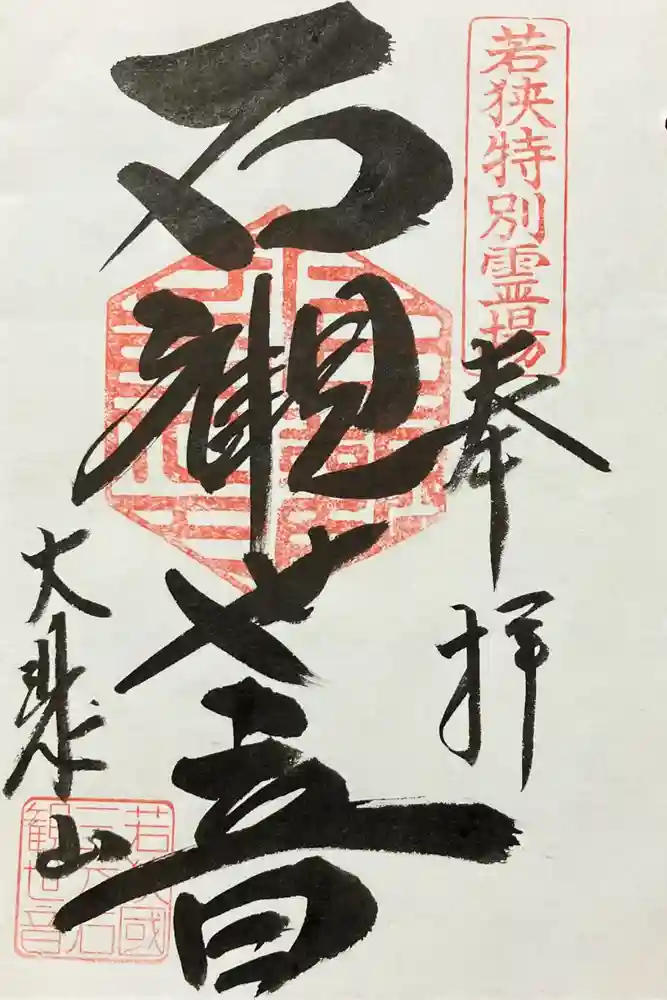 若狭特別霊場
奉拝
石観世音
大悲山
若狭國
三方石
観世音